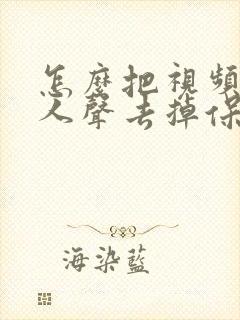 怎麼把視頻
人聲去掉保
海染藍